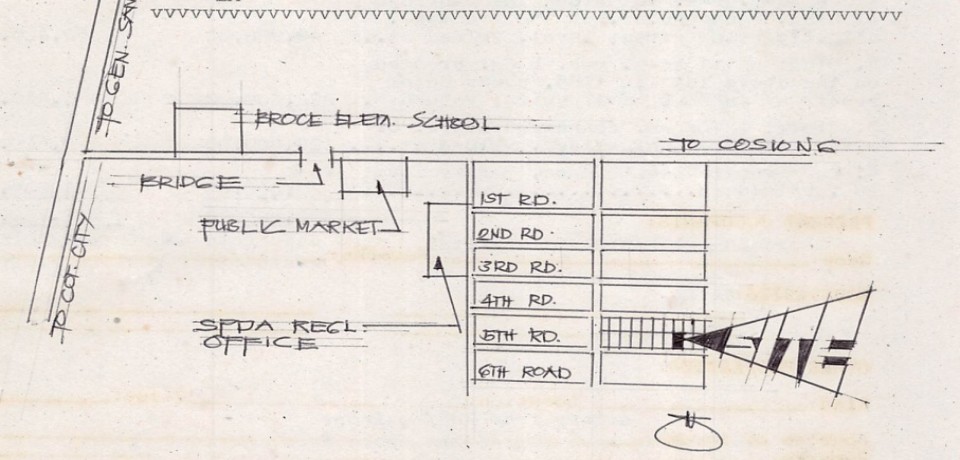 TO GEN. SAN
BROCE ELEM. SCHOOL
TO COSIONG
BRIDGE
PUBLIC MARKET
1ST RD.
2ND RD.
3RD RD.
4TH RD.
5TH RD.
6TH ROAD
SPDA REGL.
OFFICE
TO COT. CITY
SITE
N